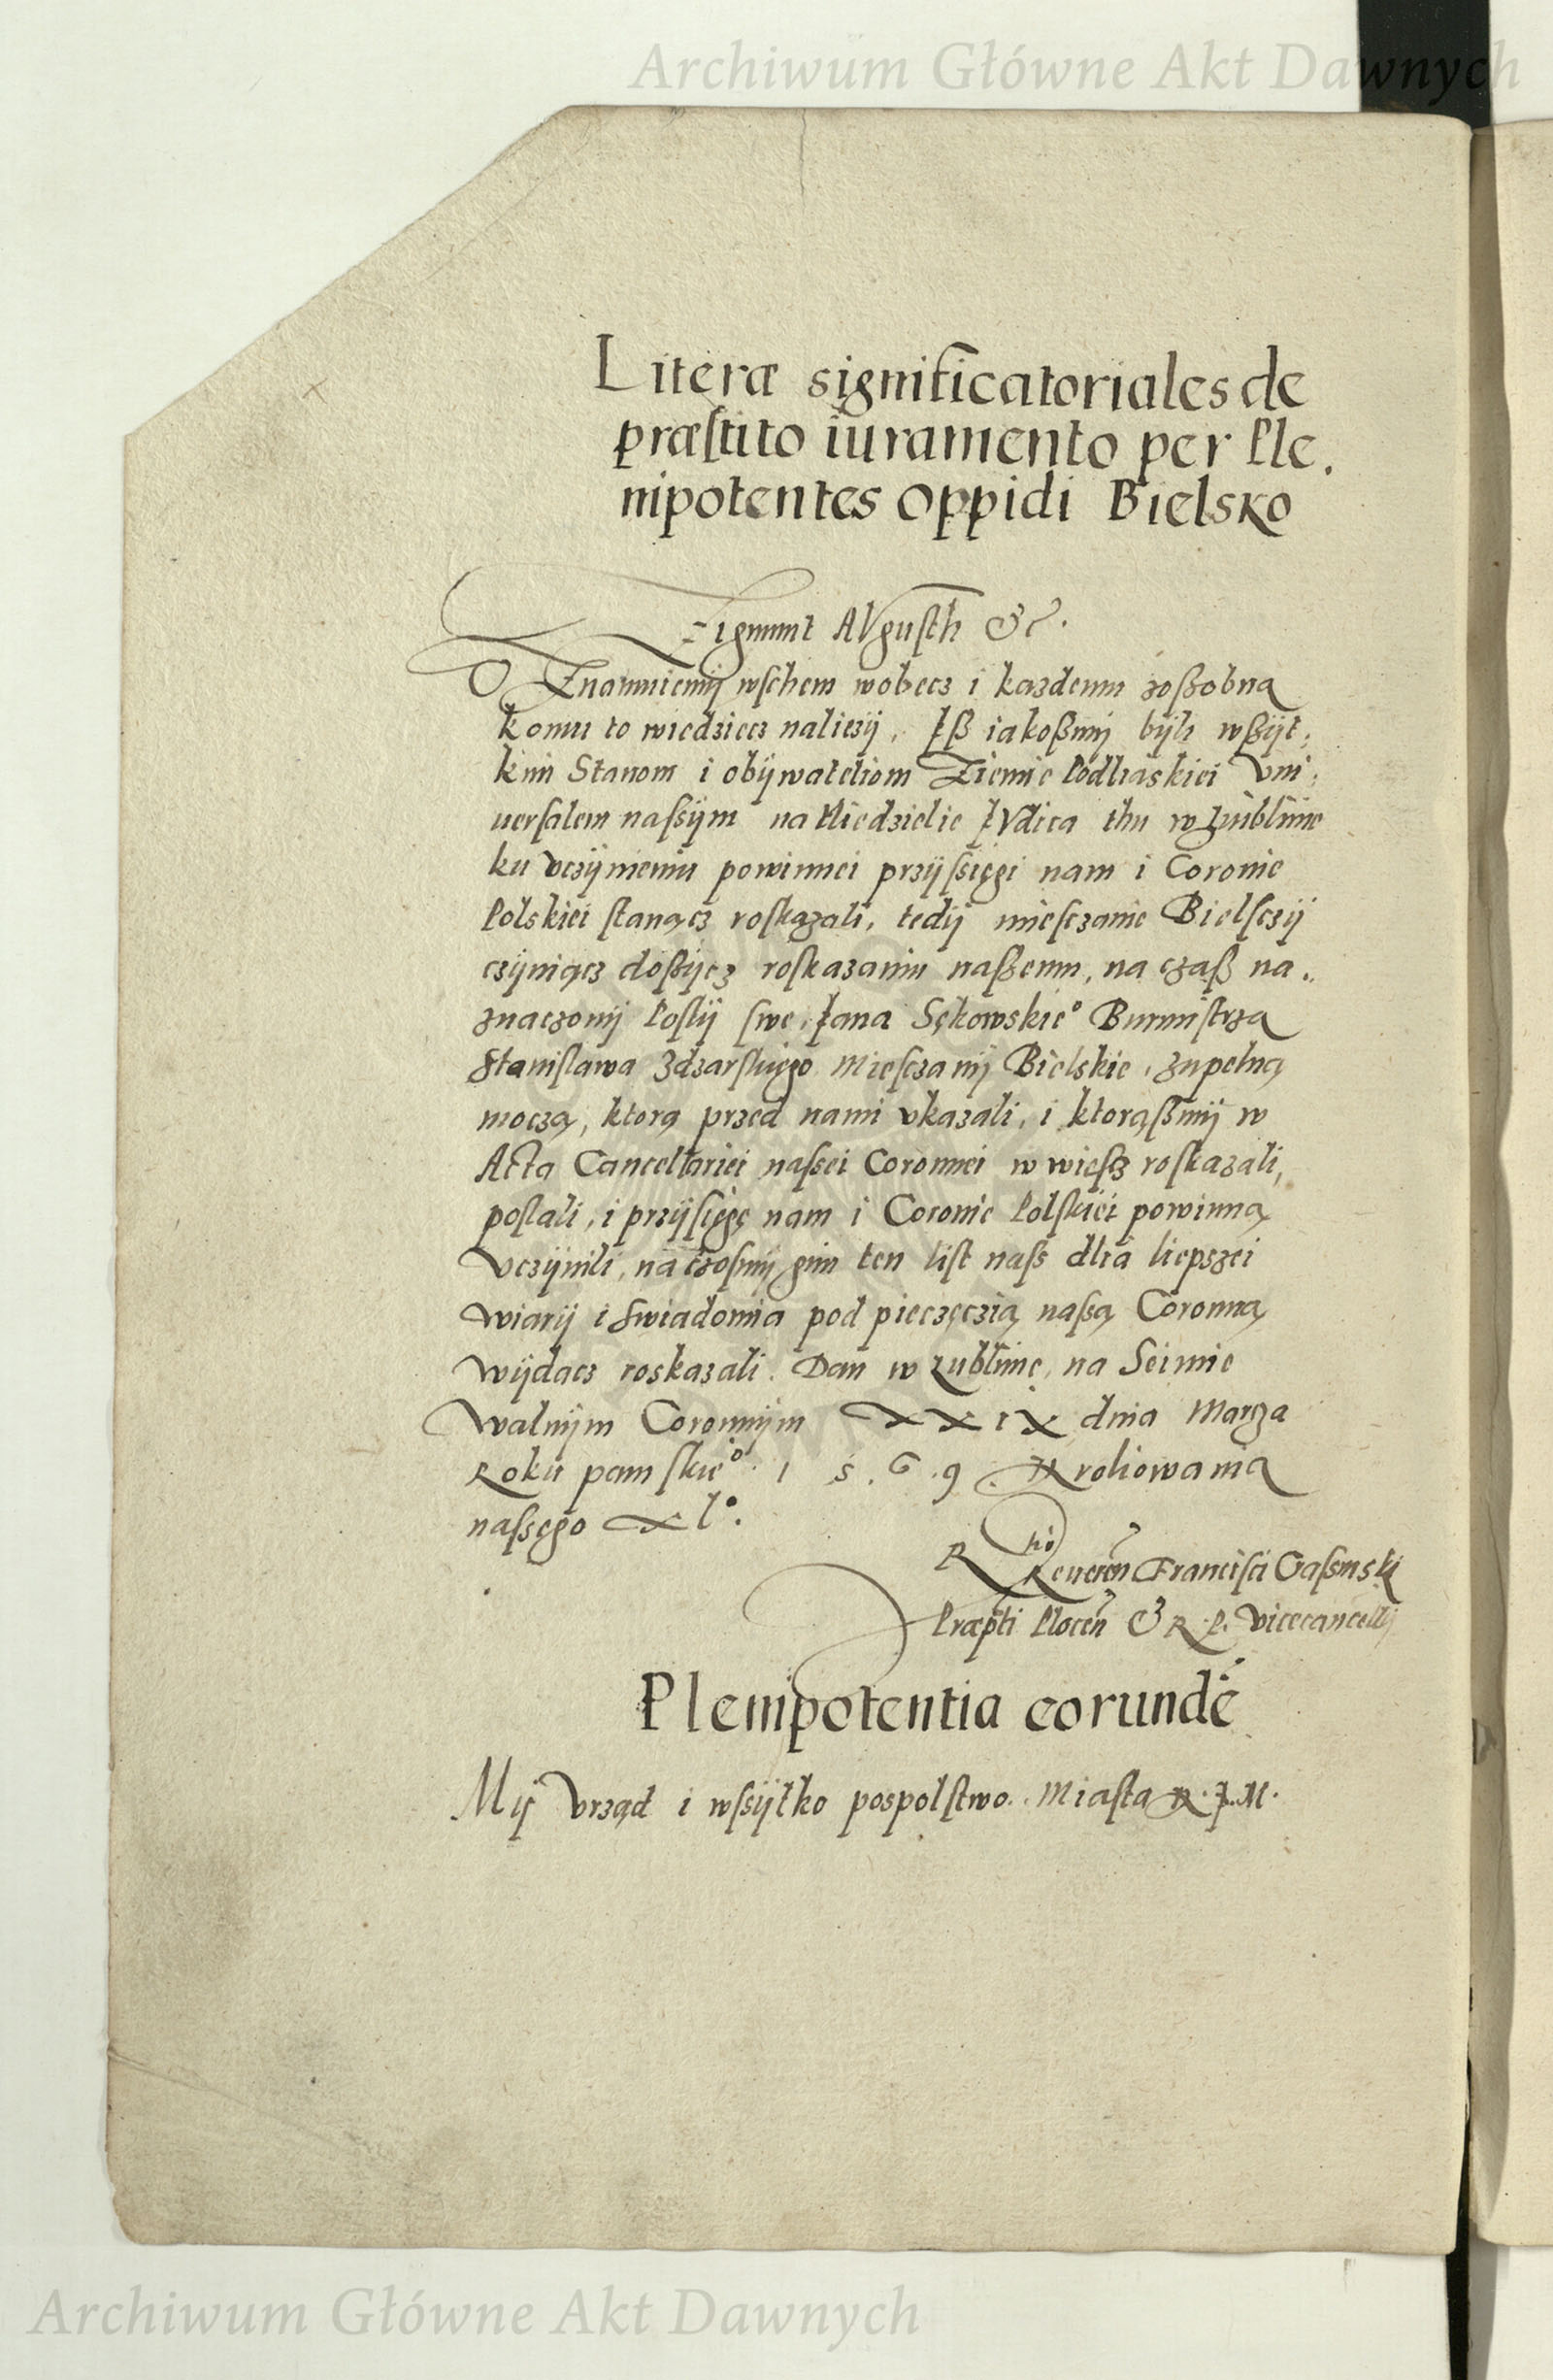 Archiwum Główne Akt Dawnych
Literæ significatoriales de
præſtito iuramento per Ple.
nipotentes oppidi Bielsko
Zigmunt AVguſth &c.
OZnaimuiemÿ wſchem wobecz i kazdemu zoßobna
komu to wiedziecz naliezÿ, Iß iakoßmÿ bÿli wßÿt:
kim Stanom i obÿwateliom Ziemie Podliaskiei Vni:
uerſalem naſsÿm na Niedzielie IVdica thu w Lubliinie
ku vczÿnieniu powinnei przÿſsięgi nam i Coronie
Polskiei ſtanącz roſkązali, tedÿ mieſczanie Bielſczÿ
czÿniącz doßÿcz roſkazaniu naßemu, na czaß na..
znaczonÿ Poſlÿ ſwe, Iana Sękowskie° Burmiſtrza
Staniſlawa Zdzarſkięgo Mieſczanÿ Bielskie, zupełną
moczą, ktorą przed nami vkazali, i ktorąßmÿ w
Acta Cancellariei naſsei Coronnei w wieſcz roſkazali,
poſłali, i przÿſięgę nam i Coronie Polſkiei powinną
Vczÿnili, na czoſmÿ gim ten liſt naſs dlia liepszei
wiarÿ i ſwiadomia pod pieczęczią naſsą Coronną
wÿdacz roskazali. Dan w Lublinie, na Seimie
walnÿm Coronnÿm XXIX dnia Marcza
Roku pamſkie° 1 5 . 6 . 9 . Kroliowania
naſsęgo xl°.
R Reueren Franciſci Craſsinski
Præpti Plocen & R. P. Vicecancellÿ
Plenipotentia eorundē
Mÿ Vrząd i wſsÿtko pospolſtwo. Miaſta K. I. M.
Archiwum Główne Akt Dawnych